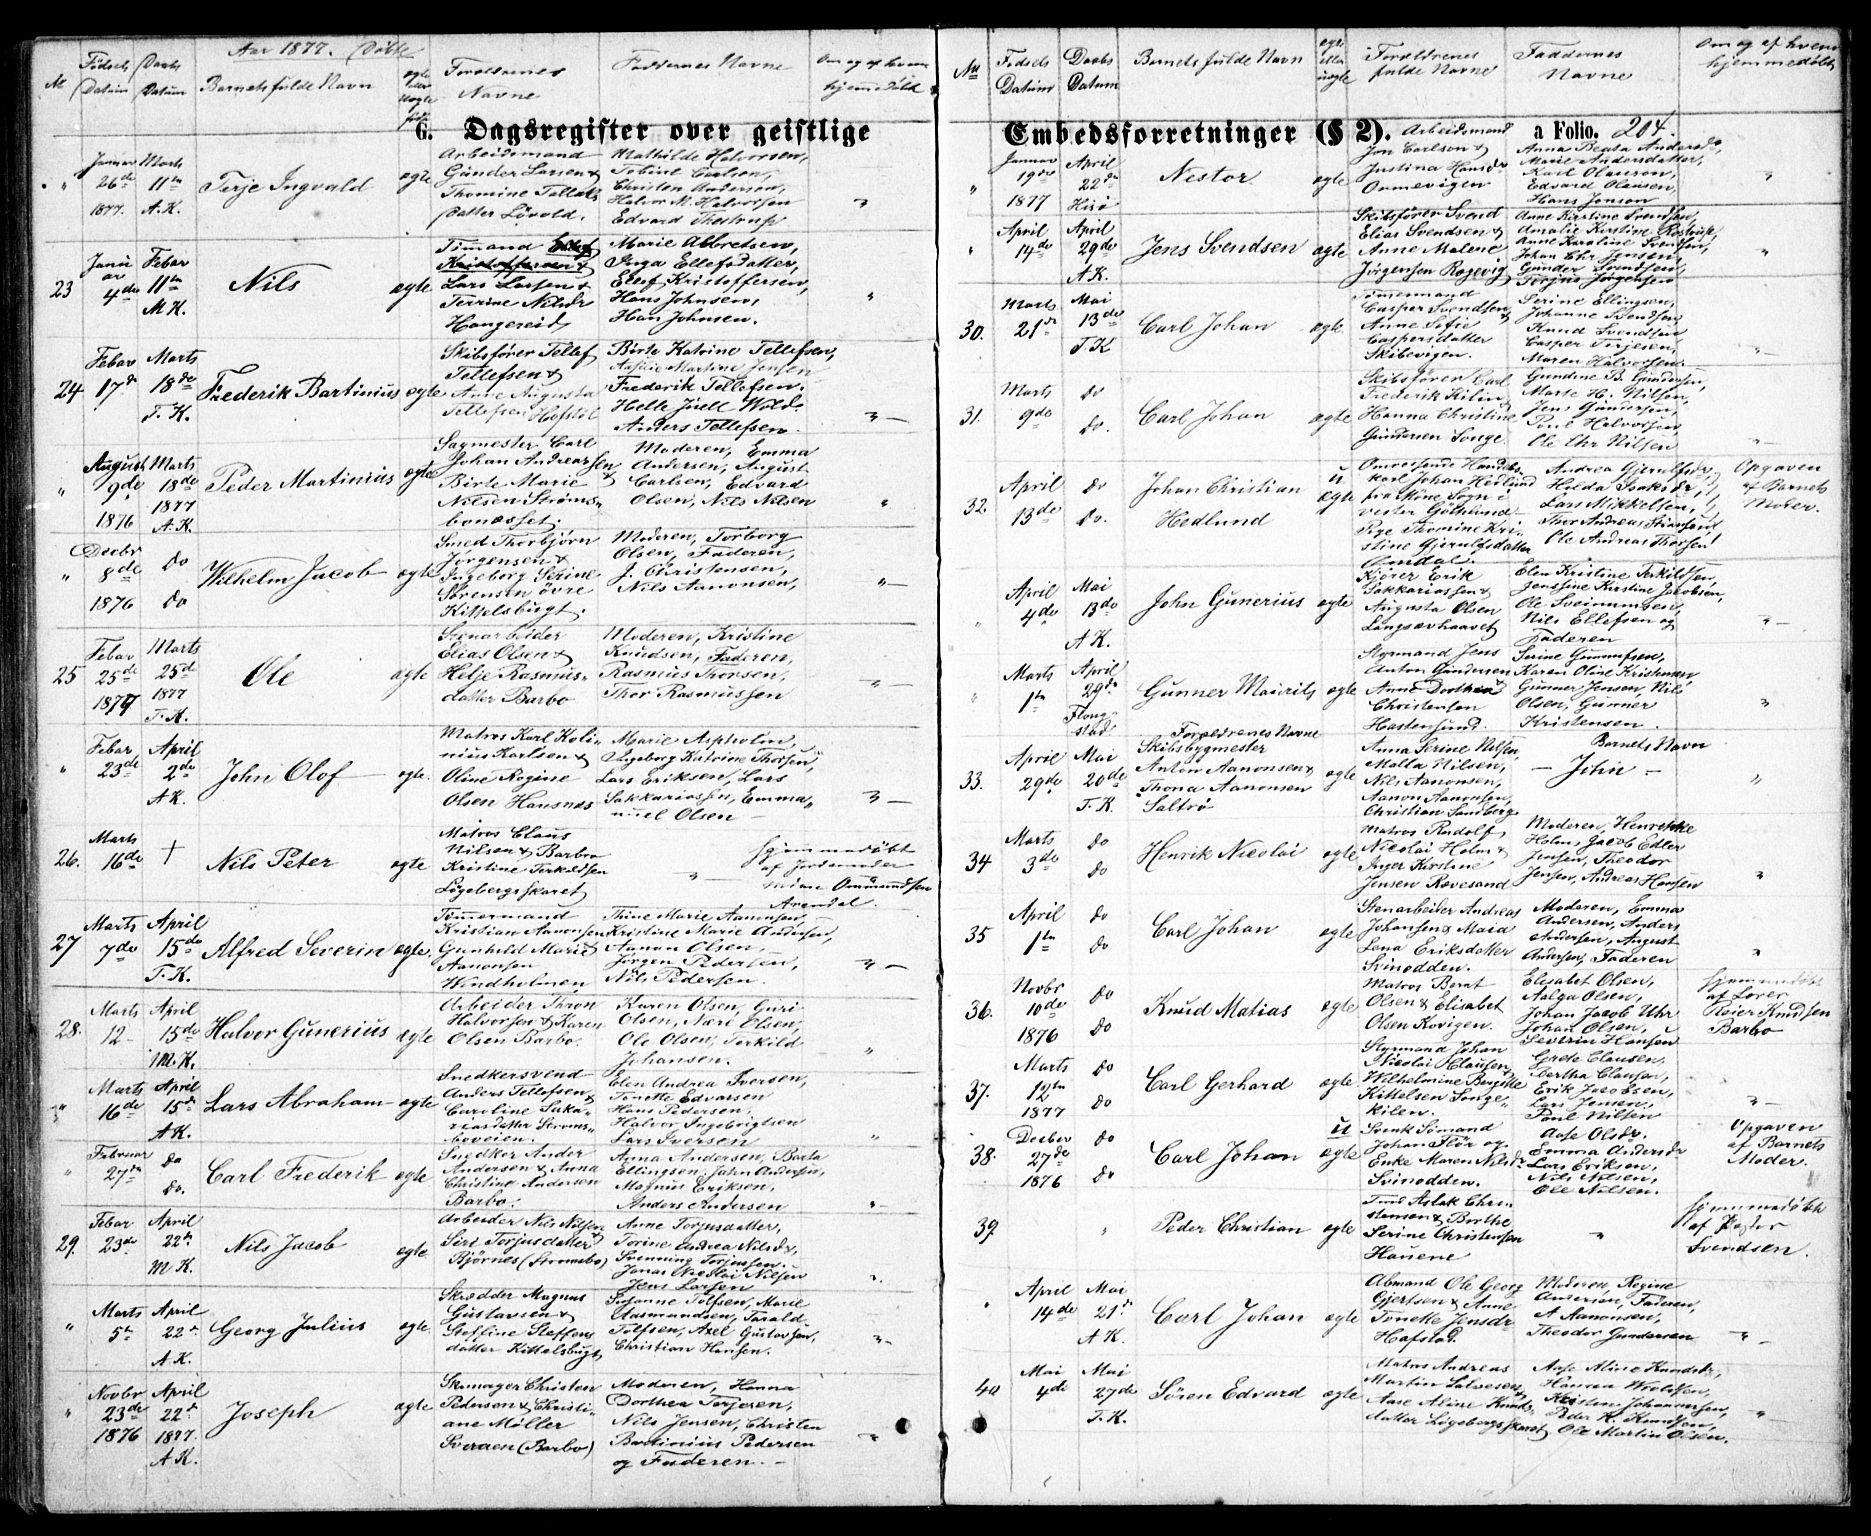 Aar 1877. Døbte
№ Fødsels Datum Daabs Datum Barnets fulde Navn ægte eller uægte født Forældrenes Navne Faddernes Navne Om og af hvem hjemmedøbt
G. Dagsregister over geistlige
" Januar 26de 1877. Marts 11te A.K. Terje Ingvald ægte
Arbeidsmand
Gunder Larsen &
Thomine Tellefs
datter Løvold.
Mathilde Halvorsen,
Tobine Carlsen,
Christen Andersen,
Halvor M. Halvorsen
Edvard Thestrup
"
23 Januar 4de Febar 11te M.K. Nils ægte
Tømand
Kristoffersen &
Lars Larsen &
Terrine Nilsdr
Hangereid
Marie Albretsen,
Inga Ellefsdatter,
Ellef Kristoffersen,
Hans Johnsen,
Han Johnsen.
"
24 Febar 17de Marts 18de T.K. Frederik Bartinius ægte
Skibsfører Tellef
Tellefsen &
Anne Augusta
Tellefsen Hofstøl
Birte Katrine Tellefsen,
Martine Jensen
Frederik Tellefsen.
Helle Juell Wold.
Anders Tellefsen.
" —
" August 9de 1876 Marts 18de 1877 A.K. Peder Martinius ægte
Sagmester Carl
Johan Andreassen
Birte Marie &
Nilsen Strøms-
bonæsset.
Moderen, Emma
Andersen, August
Carlsen, Edvard
Olsen, Nils Nilsen
"
" Decbr 8de 1876 do do Wilhelm Jacob ægte
Smed Thorbjørn
Jørgensen &
Ingeborg Serine
Sørensen øvre
Kittelsbugt.
Moderen, Torborg
Olsen, Faderen,
J. Christensen,
Nils Aanonsen,
" —
25 Febar 25de 1877 Marts 25d 1877 T.K. Ole ægte
Stenarbeider
Elias Olsen &
Helje Rasmus-
datter Barbo
Moderen, Kristine
Knudsen, Faderen,
Rasmus Thorsen,
Thor Rasmussen
" —
" Febar 23de April 2de A.K. John Olof ægte.
Matros Karl Koli-
nius Karlsen &
Oline Regine
Olsen Hansnæs
Marie Aspholm,
Ingeborg Katrine Thorsen,
Lars Eriksen, Lars
Sakkariassen, Emma-
nuel Olsen —
" —
26. Marts 16de † Nils Peter ægte
Matros Claus
Nilsen & Barbro
Kristine Terkildsen
Løgebergsskaret
" —
Hjemmedøbt
af Jordemoder
Omundsen
Arendal.
27 Marts 7de April 15de T.K. Alfred Severin ægte.
Tømmermand
Kristian Aanonsen
Gunhild Marie
Aanonsen
Windholmen
Thine Marie Aanonsen,
Kristine Marie Andersen,
Aanon Olsen
Jørgen Pedersen,
Nils Pedersen.
" —
28. Marts 12 - April 15de M.K. Halvor Gunerius ægte
Arbeider Thron
Halvorsen & Karen
Olsen Barbo.
Karen Olsen, Guri
Olsen, Næri Olsen,
Ole Olsen, Terkild
Johansen.
"
" Marts 16de April 15de A.K. Lars Abraham ægte
Snedkersvend
Anders Tellefsen &
Caroline Saka-
riasdatter Strøms-
boveien.
Elen Andrea Iversen,
Tonette Edvarsen
Hans Pedersen,
Halvor Ingebrigtsen
Lars Iversen
"
" Februar 27de do do. Carl Frederik ægte
Snedker Ander
Andersen & Anna
Christine Andersen
Barbo.
Anna Andersen, Berta
Ellingsen, John Andersen,
Magnus Eriksen,
Anders Andersen
" —
29. Febar 23de April 22de M K. Nils Jacob ægte
Arbeider Nils Nilsen
Siri Torjusdatter &
Bjørnes (Strømsbo)
Anne Torjusdatter,
Torine Andrea Nilsdr,
Svenning Torjussen.
Jonas Nicolai Nilsen
Jens Larsen
"
" Marts 5te April 22de A.K. Georg Julius ægte
Skrædder Magnus
Gustavsen &
Steffine Steffens
datter Kittelsbugt
Susanne Tolfsen, Marie
Aasmundsen, Tarald
Tolfsen, Axel Gustavsen,
Christian Hansen.
" —
" Novbr 23de 1876 April 22de 1877. A.K. Joseph ægte
Skomager Christen
Pedersen & Christi-
ane Møller
Sveraen (Barbo)
Moderen, Hanna
Dorthea Terjesen,
Nils Jensen, Christen
Bartinius Pedersen
og Faderen. —
"
№ Fødsels Datum Daabs Datum Barnets fulde Navn ægte eller uægte Forældrenes fulde Navne Faddernes Navne Om og af hvem hjemmedøbt
Embedsforretninger (§ 2). a Folio. 204.
" Januar 19de 1877 April 22de Hisø Nestor ægte
Arbeidsmand
Jon Carlson &
Justina Hansdr
Anna Beata Andersdr,
Marie Andersdatter,
Karl Olauson,
Edvard Olausen,
Hans Jonson
"
" April 14de April 29de A.K. Jens Svendsen ægte
Skibsfører Svend
Elias Svendsen &
Anne Malene
Jørgensen Rægevig
Anne Kirstine Svendsen,
Amalie Kirstine
Anne Karoline Svendsen,
Johan Chr Jensen,
Gunder Svendsen,
Torjus Jørgensen
"
30. Marts 21de Mai 13de T.K Carl Johan ægte
Tømmermand
Casper Svendsen &
Anne Sofie
Caspersdatter
Skibevigen.
Serine Ellingsen,
Johanne Svendsen
Knud Svendsen
Casper Terjesen,
Maren Halvorsen.
" —
31. Marts 9de do do. Carl Johan ægte
Skibsfører Carl
Frederik Kilin &
Hanna Christine
Gundersen Songe
Gundine B. Gundersen,
Marte H. Nilsen,
Jens Gundersen,
Poul Halvorsen
Ole Chr Nilsen
" —
32. April 13de do do. Johan Christian Hedlund u ægte
Omreisende Handels-
karl Johan Hedlund
fra Sköne Sogn i
Vester Göthland
Pige Thomine Kri-
stine Gjerulfsdatter
Omdal.
Andrea Gjerulfsdr,
Helda Isaksdr,
Lars Mikkelsen,
Thor Andreas
Ole Andreas Thorsen
Opgaven
af Barnets
Moder.
" April 4de Mai 13de A.K. John Gunerius ægte
Kjører Erik
Sakkariassen &
Augusta Olsen
Langsævhaavet
Elen Kristine Terkildsen,
Jensine Kirstine Jacobsen,
Ole Sveinungsen,
Nils Ellefsen og
Faderen
" —
" Marts 1te April 29de Flougstad Gunner Mairits ægte
Styrmand Jens
Anton Gundersen
Anne Dorthea
Christensen
Hastensund.
Serine Gunnufsen,
Karen Oline Kristensen,
Gunner Jensen, Nils
Olsen, Gunner
Kristensen.
"
33. April 29de Mai 20de T.K.
Forældrenes Navne
Skibsbygmester
Anton Aanonsen &
Thona Aanonsen
Saltrø
ægte
Anna Serine Nilsen,
Malla Nilsen,
Nils Aanonsen,
Aanon Aanonsen,
Christian Sundberg
Barnets Navn
— John —
"
34 Marts 3de do do Henrik Nicolai ægte
Matros Rudolf
Nicolai Holm &
Inger Kirstine
Jensen Revesand
Moderen, Henrikke
Holm, Jacob Edler
Jensen, Theodor
Jensen, Andreas Hansen
"
35 April 1te do do Carl Johan ægte
Stenarbeider Andreas
Johansen & Maia
Lena Eriksdatter
Svinodden.
Moderen, Emma
Andersen, Anders
Andersen, August
Andersen, Faderen
"
36. Novbr 10de 1876 do do Knud Matias ægte
Matros Bernt
Olsen & Elisabet
Olsen Kovigen.
Elisabet Olsen,
Aalga Olsen,
Johan Jacob Chr
Johan Olsen,
Severin Hansen
Hjemmedøbt
af Lærer
Reier Knudsen
Barbo
37. Marts 12te 1877 do do Carl Gerhard ægte
Styrmand Johan
Nicolai Clausen &
Wilhelmine Birgitte
Kittelsen Songe-
kilen.
Grete Clausen,
Bertha Clausen,
Erik Jacobsen,
Lars Jensen,
Poul Nilsen
" —
38. Decber 27de 1876 do do Carl Johan u ægte
Svensk Sømand
Johan Flör og
Enke Maren Nilsdr
Svinodden.
Aase Olsdr.
Emma Andersdr
Lars Eriksen,
Nils Nilsen,
Ole Nilsen.
Opgaven
af Barnets
Moder.
39. " Peder Christian ægte
Tømd Aslak Chri-
stensen & Berthe
Serine Christensen
Hauene
"
Hjemmedøbt
af Pastor
Svendsen.
" April 14de Mai 21de A K. Carl Johan ægte
Ole Georg
Gjertsen & Anne
Tonette Jensdr
Hafstad.
Moderen, Regine
Andersen, Faderen,
A Aanonsen,
Theodor Gundersen
" —
40 Mai 4de Mai 27de T.K. Søren Edvard ægte
Matros Andreas
Martin Salvesen &
Aase Aline Knuds-
datter Løgebergsskaret
Aase Aline Knudsdr,
Hanna
Kristen Johannesen,
Peder K. Knudsen,
Ole Martin Olsen.
" —